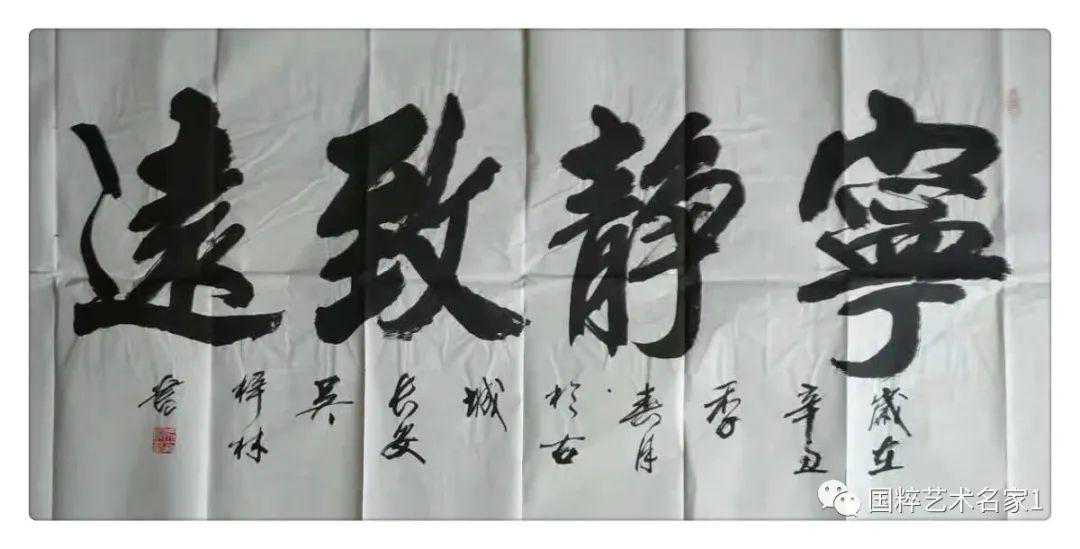 寧靜致遠
歲在
辛丑
季
春月
於古
城
长安
吴
梓林
書
国粹艺术名家1